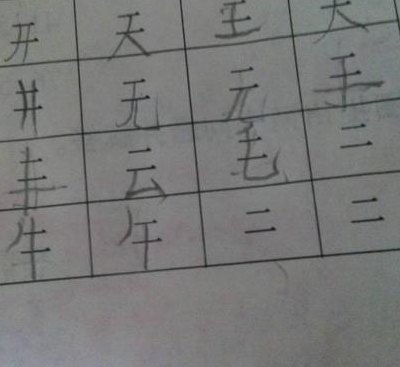 开 天 王 大
井 无 元 手
丰 云 毛 二
牛 午 二 二